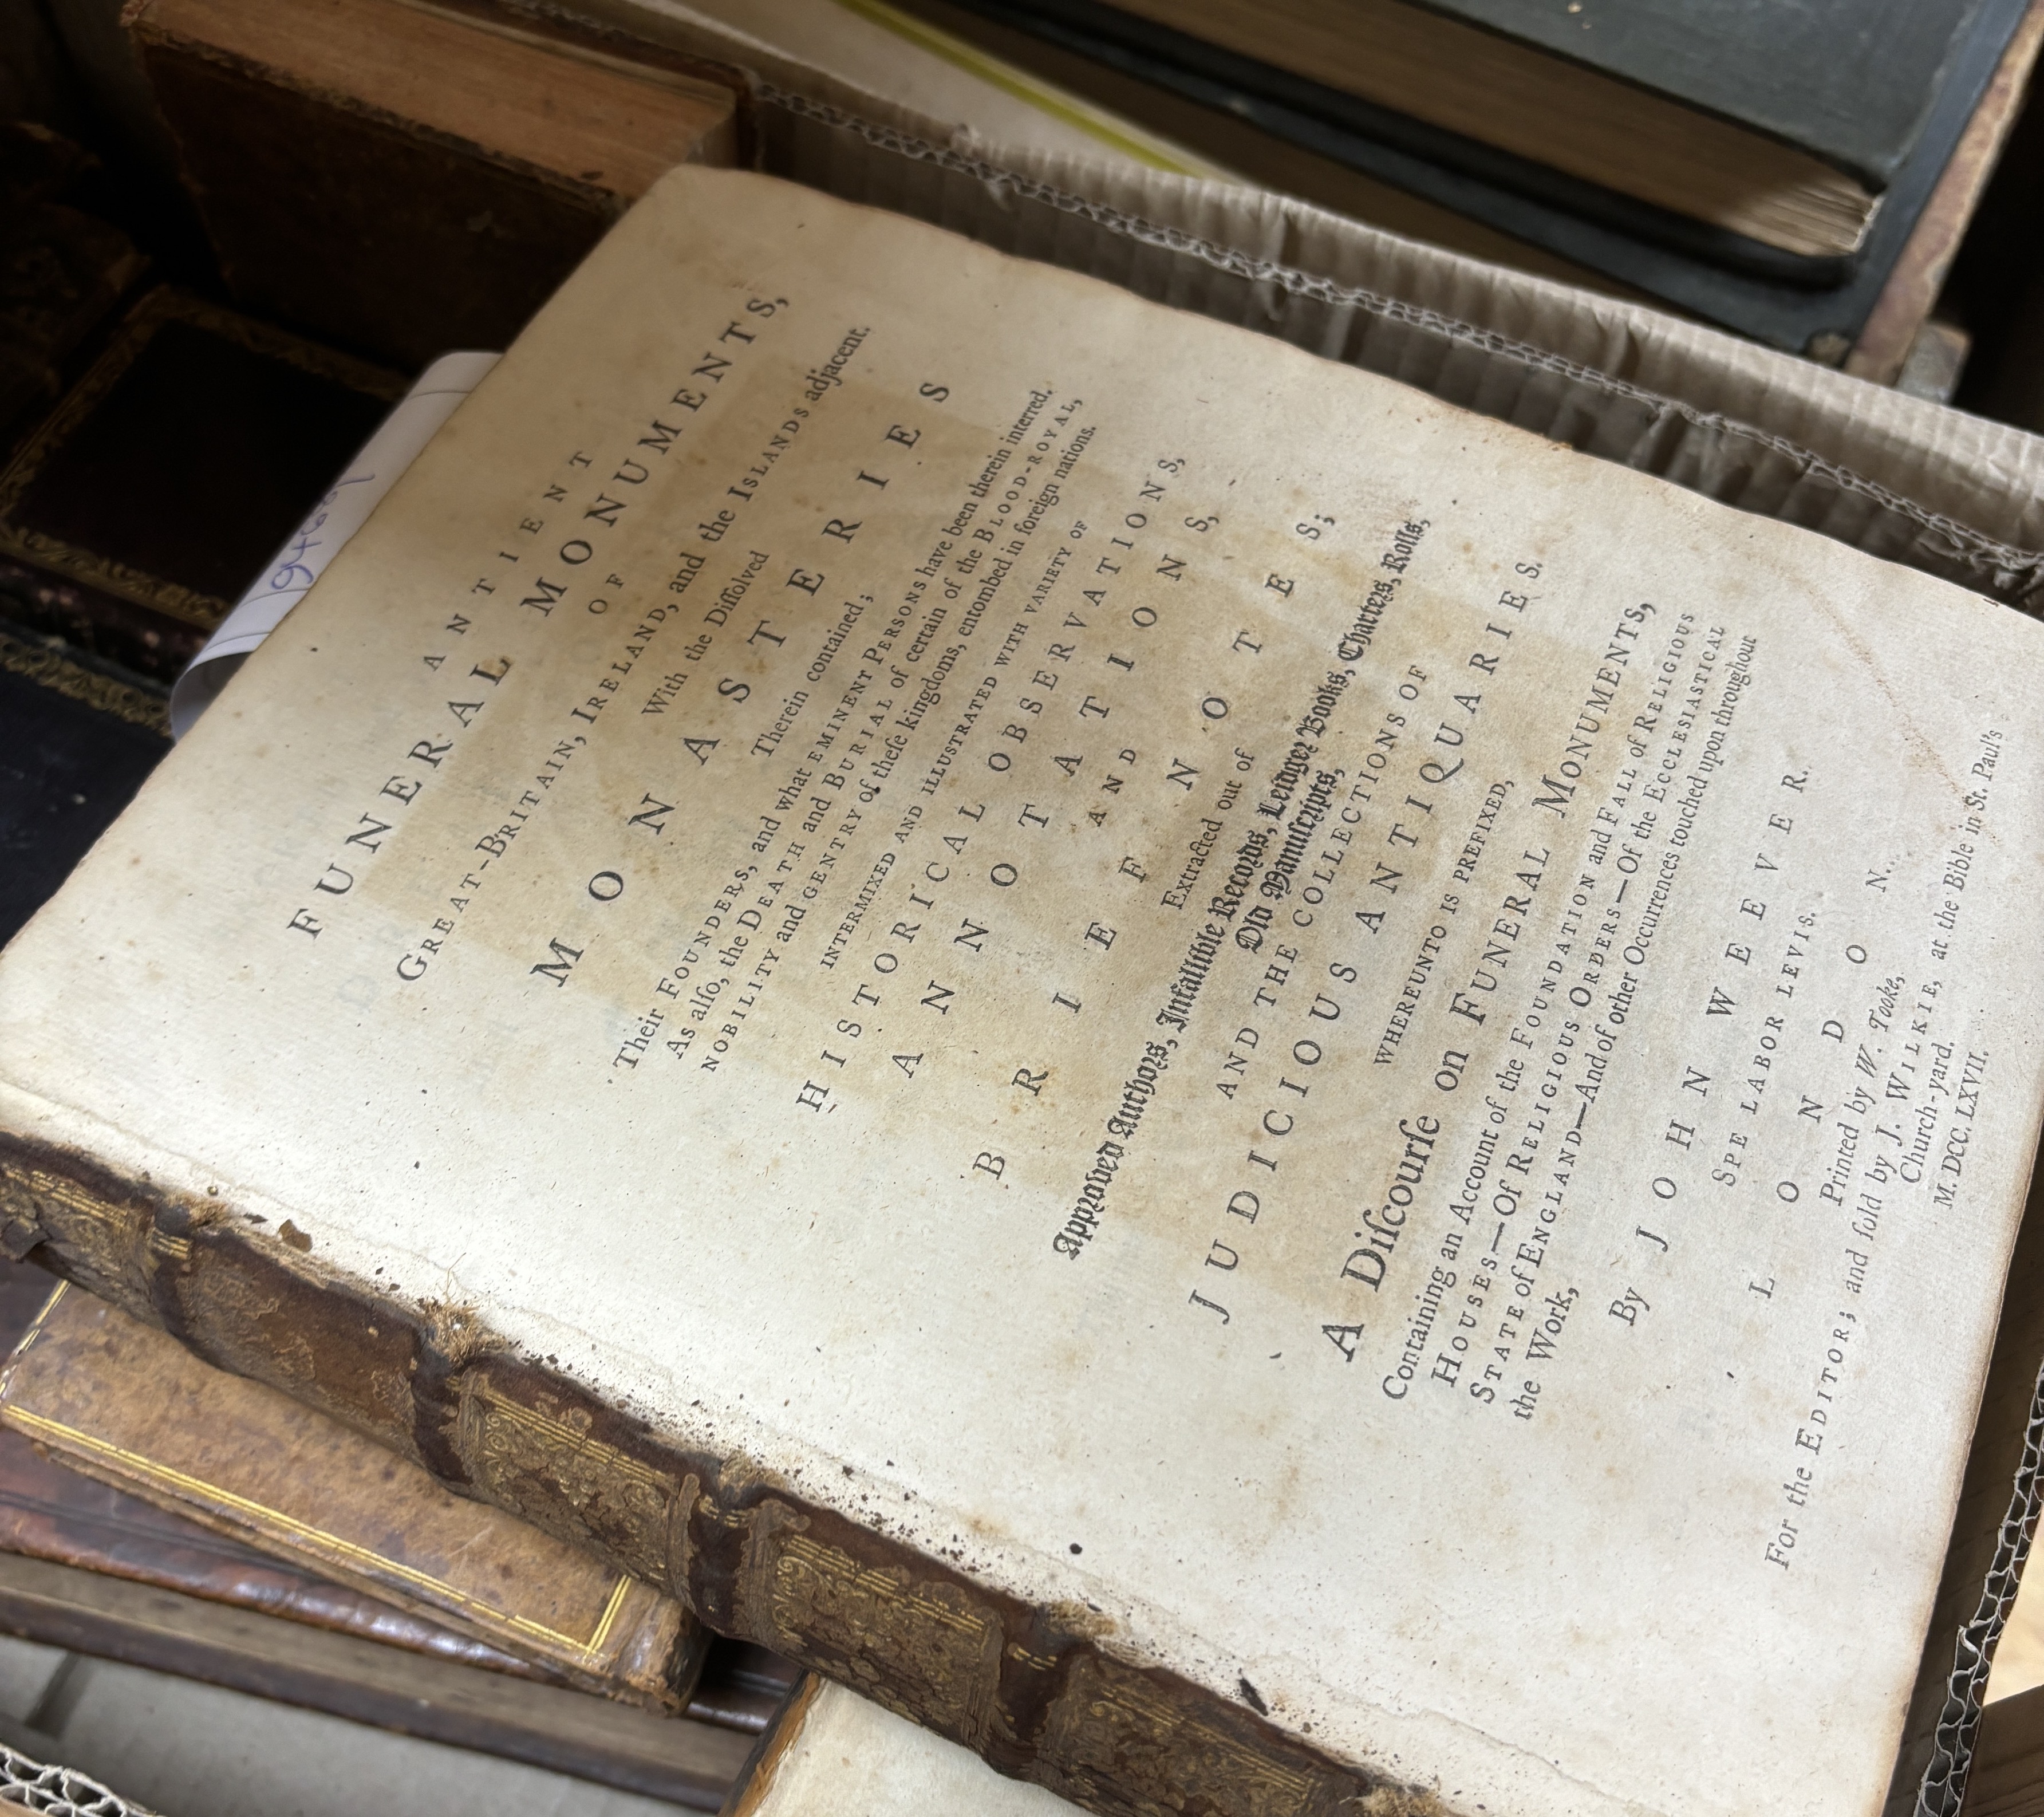 ANTIENT
FUNERAL MONUMENTS,
OF
GREAT-BRITAIN, IRELAND, and the ISLANDS adjacent.
With the Diſſolved
MONASTERIES
Therein contained;
Their FOUNDERS, and what EMINENT PERSONS have been therein interred.
As alſo, the DEATH and BURIAL of certain of the BLOOD-ROYAL,
NOBILITY and GENTRY of theſe kingdoms, entombed in foreign nations.
INTERMIXED AND ILLUSTRATED WITH VARIETY OF
HISTORICAL OBSERVATIONS,
ANNOTATIONS,
AND
BRIEF NOTES;
Extracted out of
Approved Authors, Infallible Records, Leidger Books, Charters, Rolls,
Old Manuſcripts,
AND THE COLLECTIONS OF
JUDICIOUS ANTIQUARIES.
WHEREUNTO IS PREFIXED,
A Diſcourſe on FUNERAL MONUMENTS,
Containing an Account of the FOUNDATION and FALL of RELIGIOUS
HOUSES—Of RELIGIOUS ORDERS—Of the ECCLESIASTICAL
STATE of ENGLAND—And of other Occurrences touched upon throughout
the Work,
By JOHN WEEVER.
SPE LABOR LEVIS.
LONDON.
Printed by W. Tooke,
For the EDITOR; and ſold by J. WILKIE, at the Bible in St. Paul's
Church-yard.
M.DCC.LXVII.